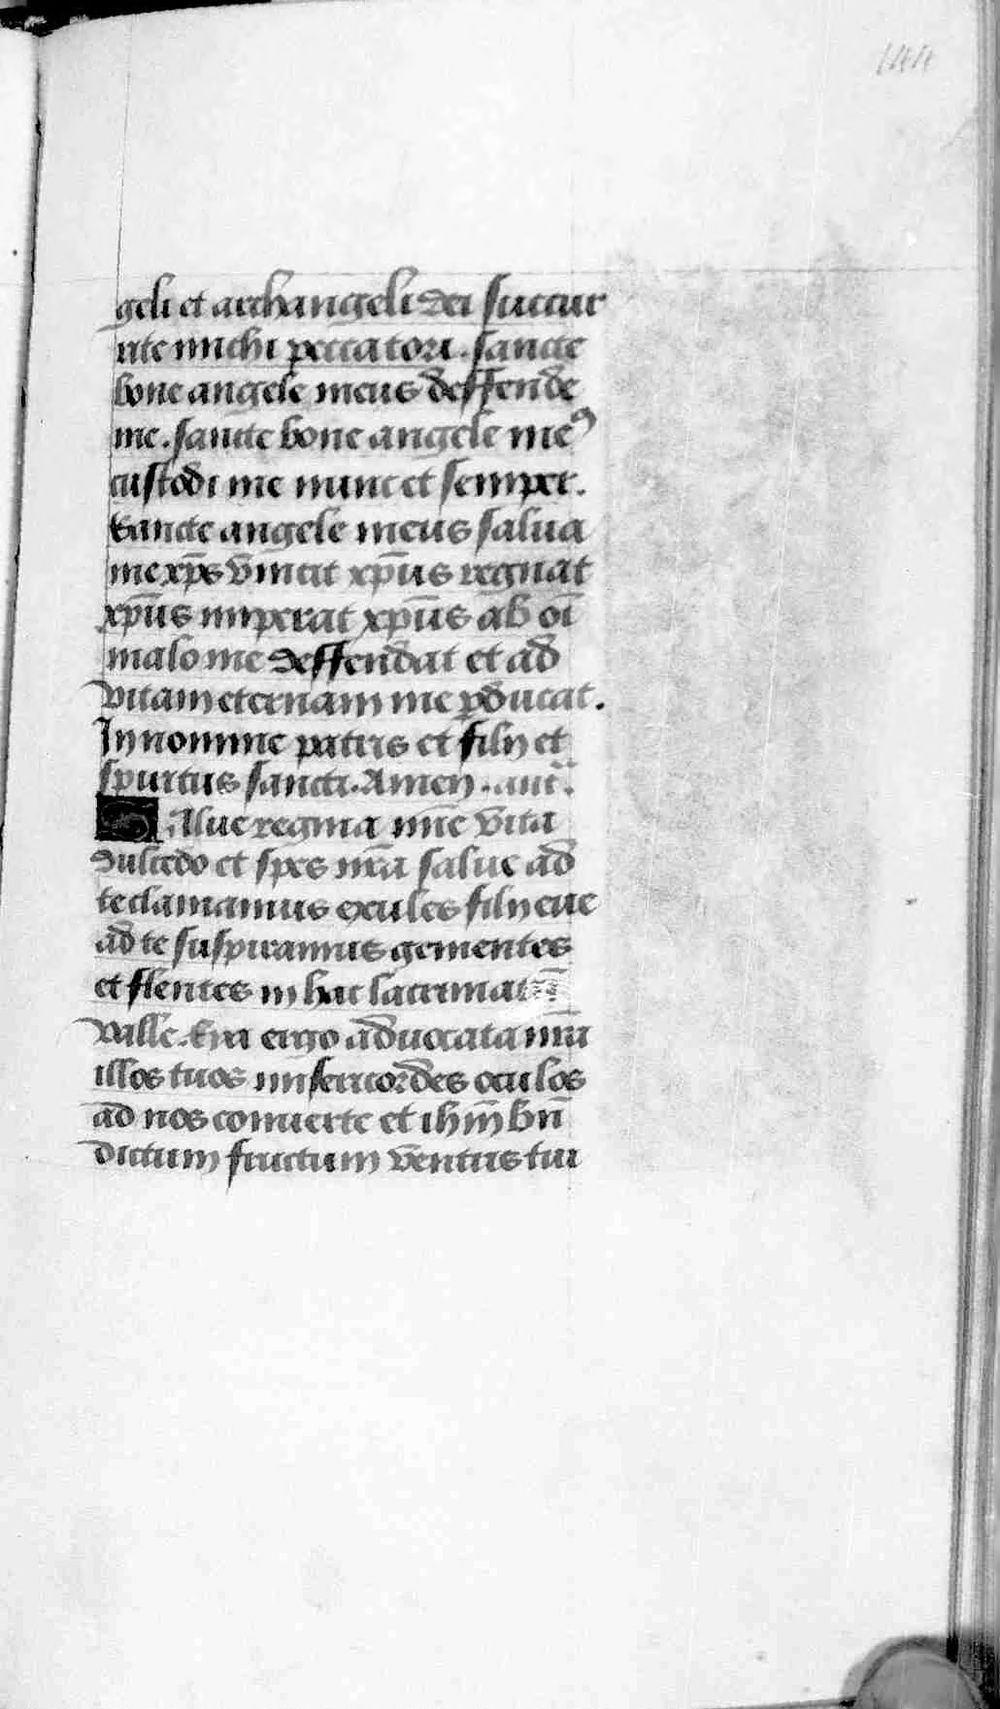 144
geli et archangeli dei succur
rite michi peccatori. sancte
bone angele meus deffende
me. sancte bone angele meꝰ
custodi me nunc et semper.
Sancte angele meus salua
me xp̄s vincit xp̄us regnat
xp̄us imperat xp̄us ab oī
malo me deffendat et ad
vitam eternam me pducat.
In nomine patris et filij et
spiritus sancti. Amen. ant̄.
SAlue regina mīe vita
dulcedo et spes nr̄a salue ad
te clamamus exules filij eue
ad te suspiramus gementes
et flentes in hac lacrimar
valle. Eya ergo aduocata nr̄a
illos tuos misericordes oculos
ad nos conuerte et ihm̄ bn̄
dictum fructum ventris tui